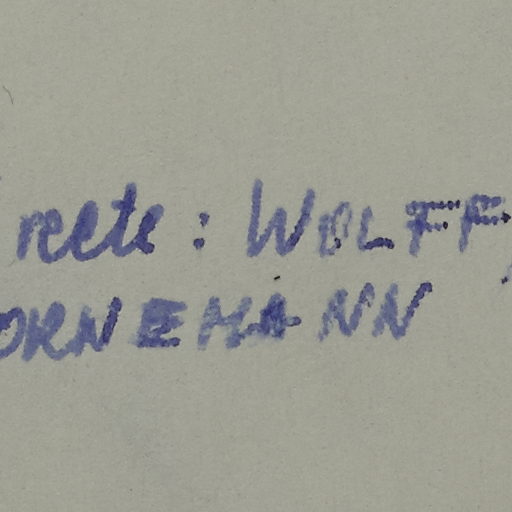 recte: WOLFF
ORNEMANN